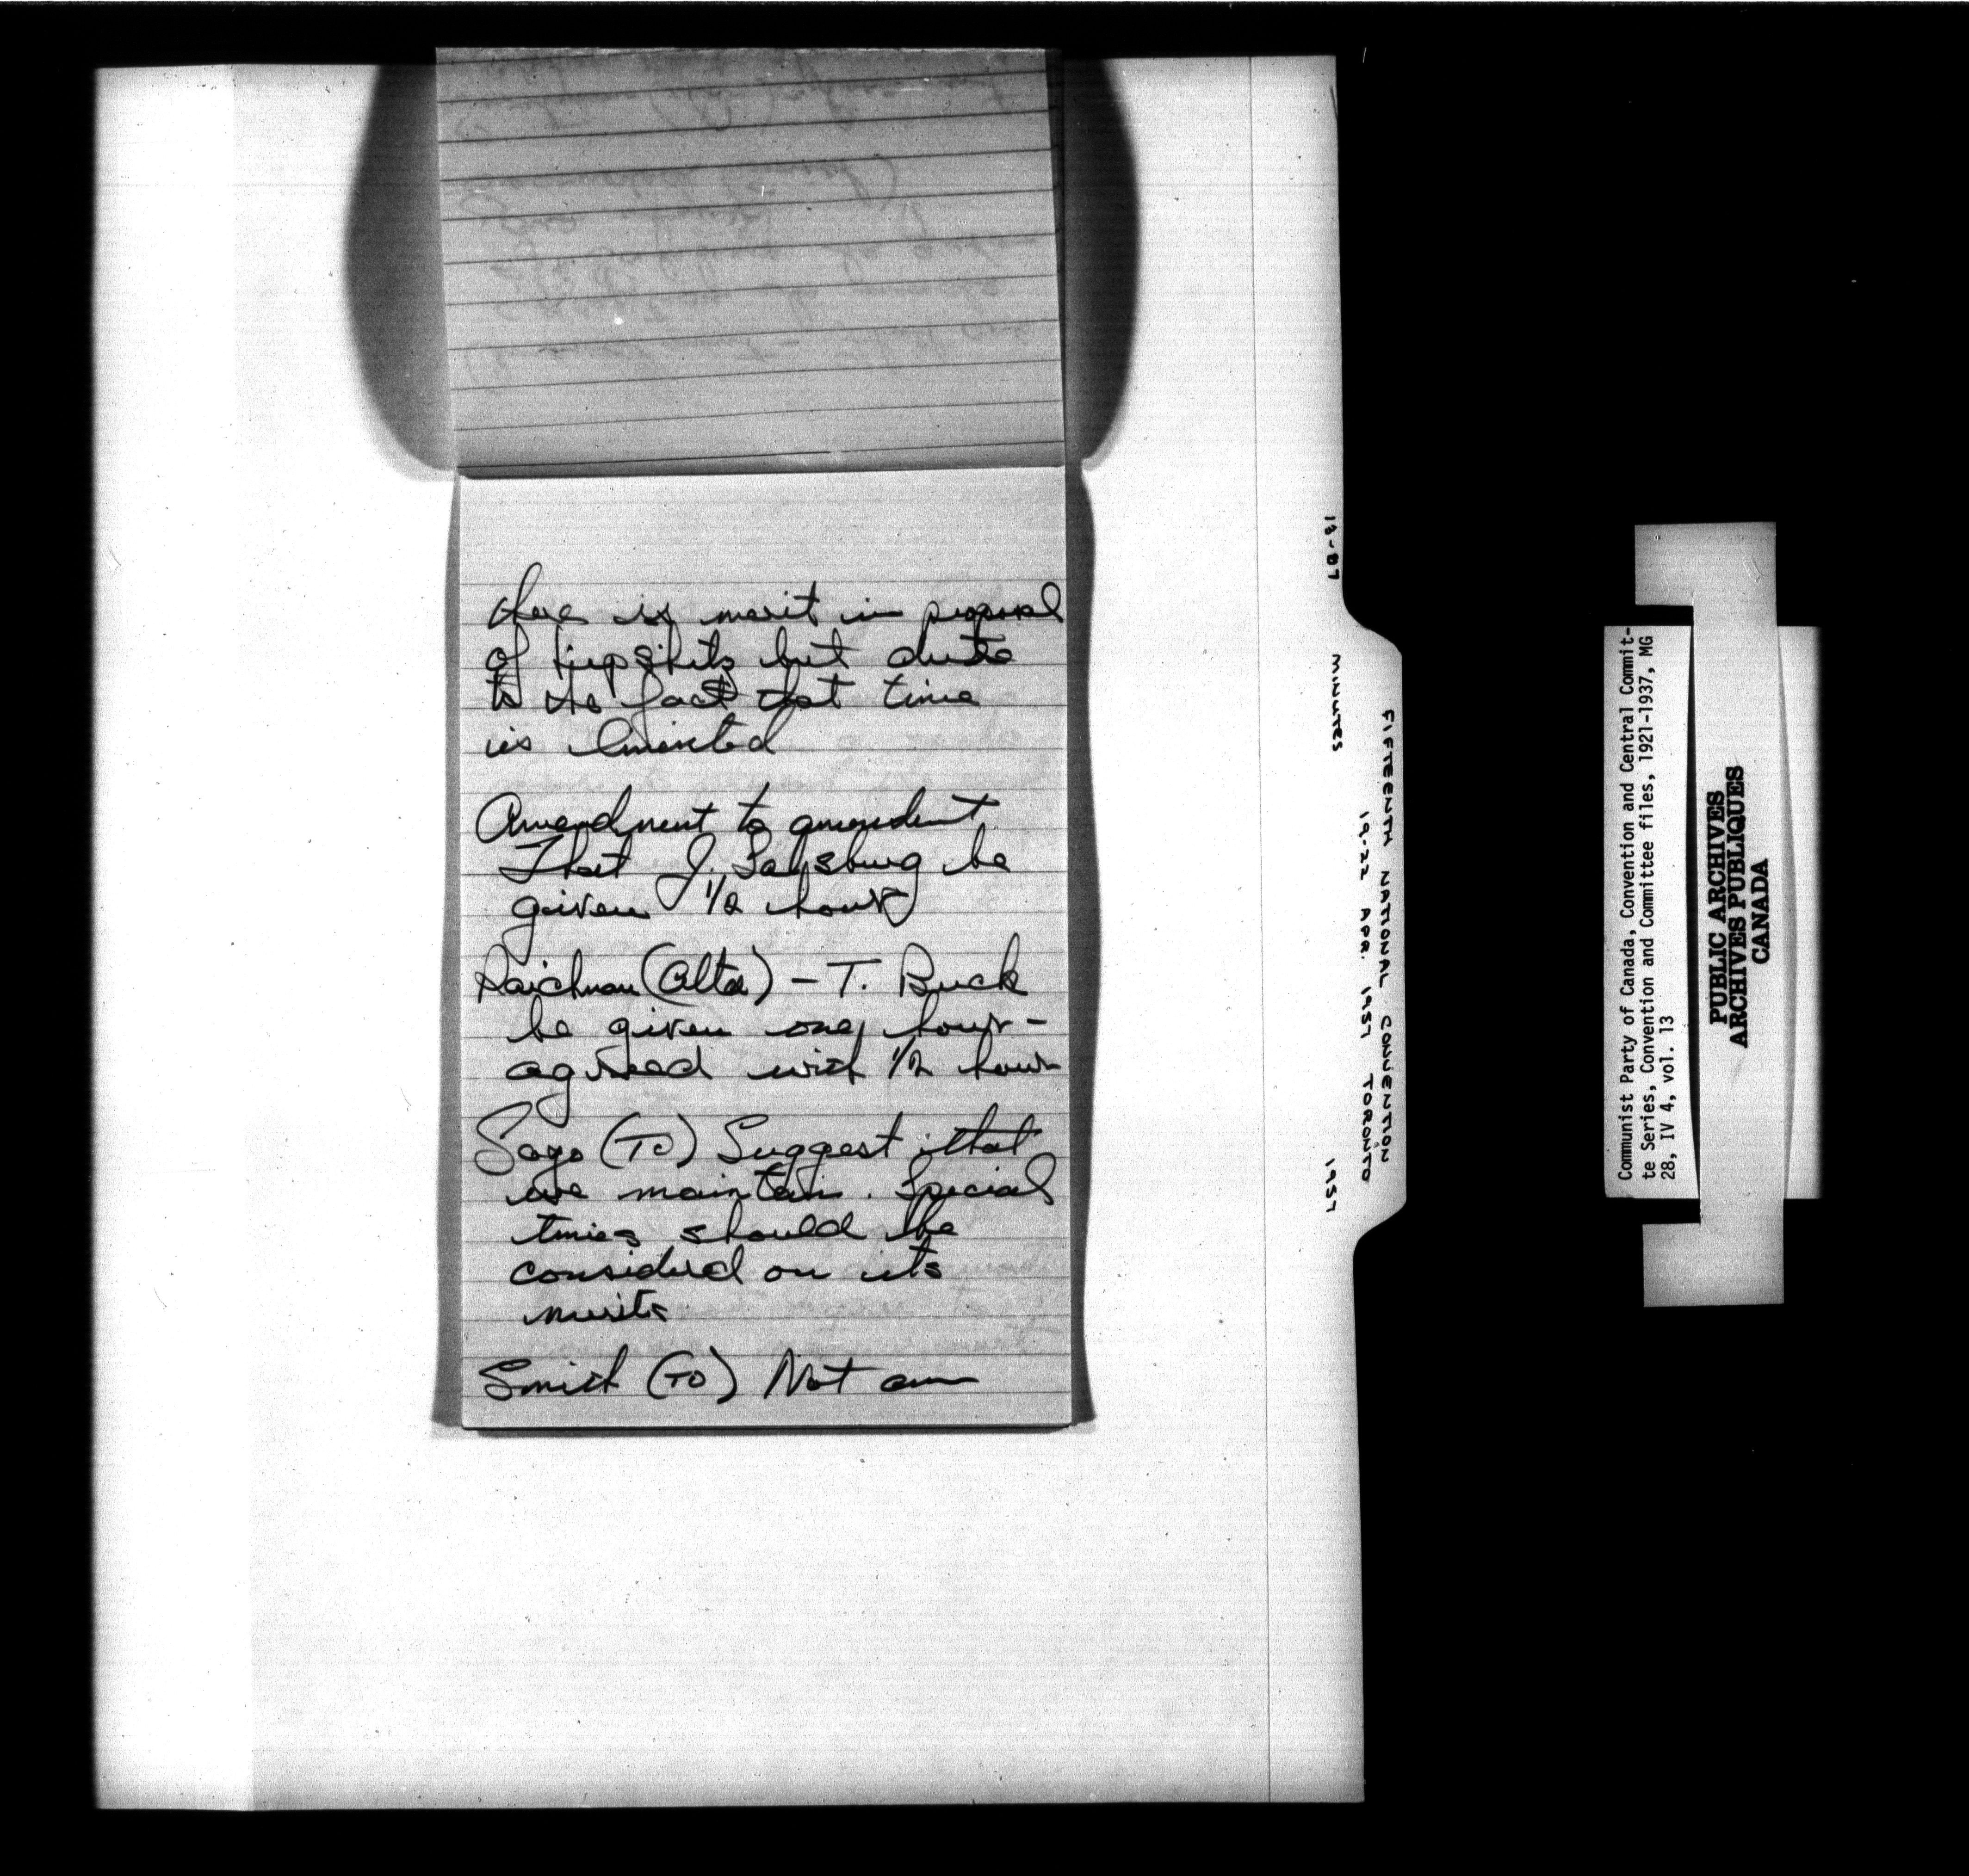 there is merit in proposal
of but due to
to the fact that time
is limited
Amendment to amendment
That J. Salsburg be
given 1/2 hour
(Alta) - T. Buck
be given one hour -
agreed with 1/2 hour
(TO) Suggest that
we maintain. Special
times should be
considered on its
merits
Smith (TO) Not am
13-07
MINUTES
1957
FIFTEENTH NATIONAL CONVENTION
19-22 APR. 1957 TORONTO
Communist Party of Canada, Convention and Central Commit-
te Series, Convention and Committee files, 1921-1937, MG
28, IV 4, vol. 13
PUBLIC ARCHIVES
ARCHIVES PUBLIQUES
CANADA